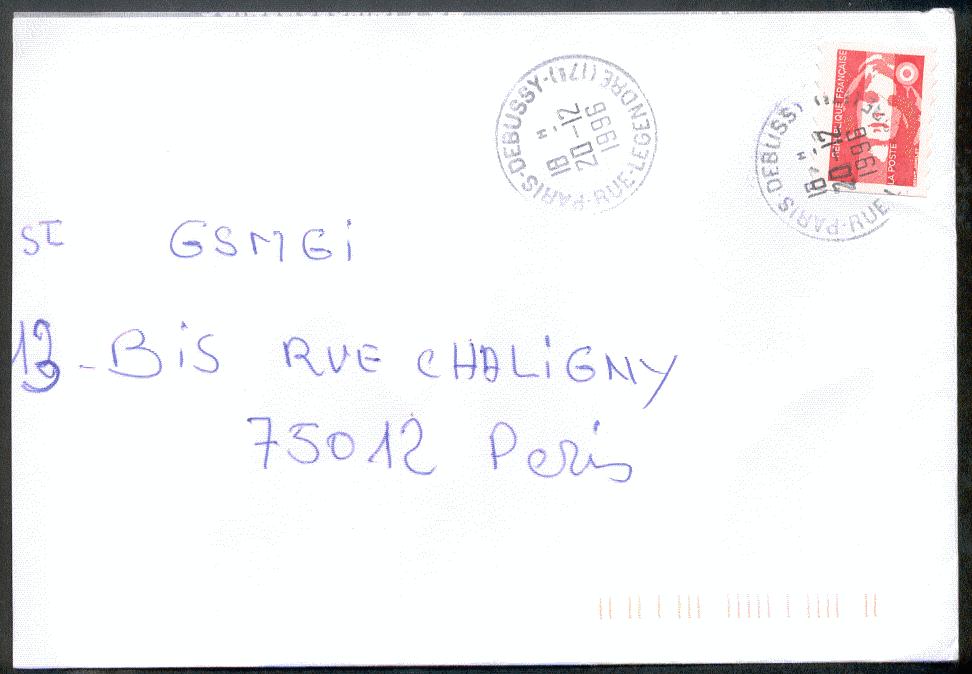 PARIS-DEBUSSY-(17E) RUE-LEGENDRE
18 H
20-12
1996
PARIS-DEBUSSY
RUE
18 H
20-12
1996
RÉPUBLIQUE FRANÇAISE
LA POSTE
ST GSMGI
13-BIS RUE CHALIGNY
75012 Paris